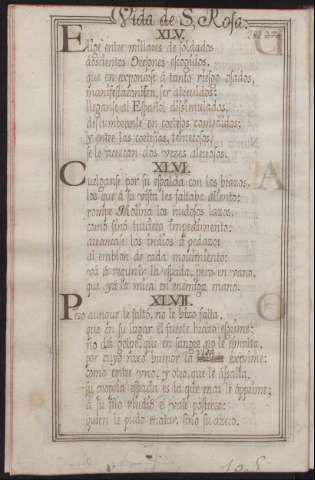 Vida de S. Rosa.
XLV.
Elige entre millares de soldados
doscientos Orejones escogidos,
que en exponerse à tanto riesgo osados,
manifestaron ser atrevidos:
lleganse al Español dissimulados,
deslumbrante en corteses
y entre las cortesias,
se le acercan dos vezes alevosos.
XLVI.
Cuelganse por su espalda con los brazos,
los que à su vista les faltaba aliento:
rompe Molina los nudosos lazos,
como sino tuviera impedimento:
avientaje los Indios à pedazos
al emblon de cada movimiento:
và à requirir la espada, pero en vano,
que yà la mira en enemiga mano.
XLVII.
Pero aunque le faltò, no le hizo falta,
que en su lugar el fuerte brazo esgrime;
no dà golpe, que en sangre no le
por cuyo roxo humor la exprime:
como entre uno, y otro, que le assalta,
su propia espada es la que mas le opprime;
à su filo rindiò el vale postrero:
quien le pudo matar, sino su azero.